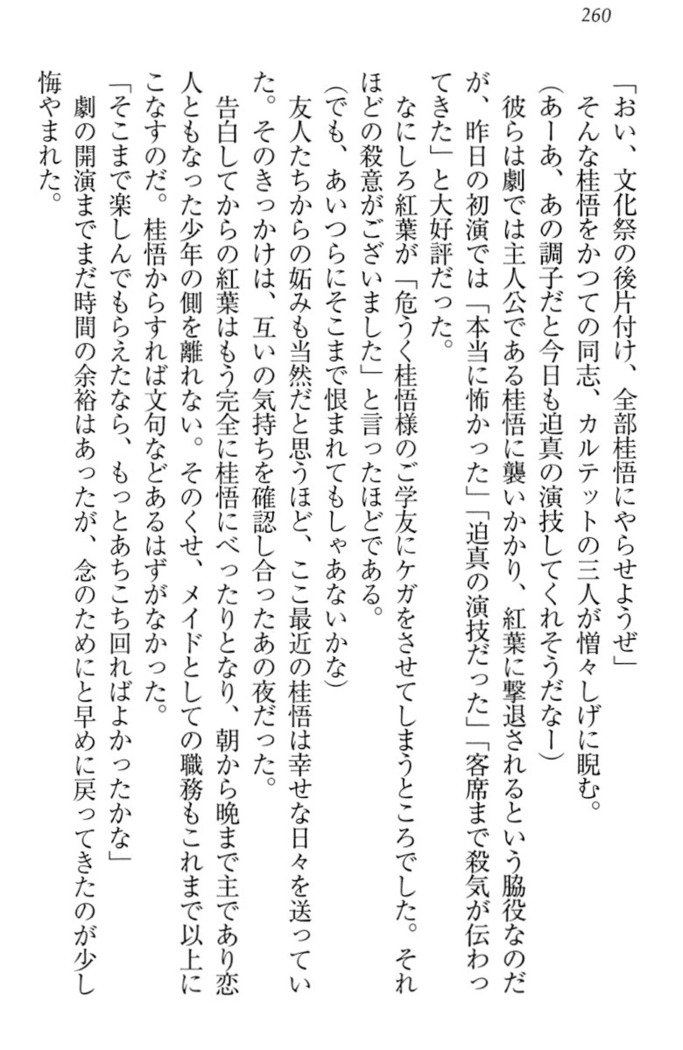 260
「おい、文化祭の後片付け、全部桂悟にやらせようぜ」
そんな桂悟をかつての同志、カルテットの三人が憎々しげに睨む。
（あーあ、あの調子だと今日も迫真の演技してくれそうだなー）
彼らは劇では主人公である桂悟に襲いかかり、紅葉に撃退されるという脇役なのだ
が、昨日の初演では「本当に怖かった」「迫真の演技だった」「客席まで殺気が伝わっ
てきた」と大好評だった。
なにしろ紅葉が「危うく桂悟様のご学友にケガをさせてしまうところでした。それ
ほどの殺意がございました」と言ったほどである。
（でも、あいつらにそこまで恨まれてもしゃあないかな）
友人たちからの妬みも当然だと思うほど、ここ最近の桂悟は幸せな日々を送ってい
た。そのきっかけは、互いの気持ちを確認し合ったあの夜だった。
告白してからの紅葉はもう完全に桂悟にべったりとなり、朝から晩まで主であり恋
人ともなった少年の側を離れない。そのくせ、メイドとしての職務もこれまで以上に
こなすのだ。桂悟からすれば文句などあるはずがなかった。
「そこまで楽しんでもらえたなら、もっとあちこち回ればよかったかな」
劇の開演までまだ時間の余裕はあったが、念のためにと早めに戻ってきたのが少し
悔やまれた。